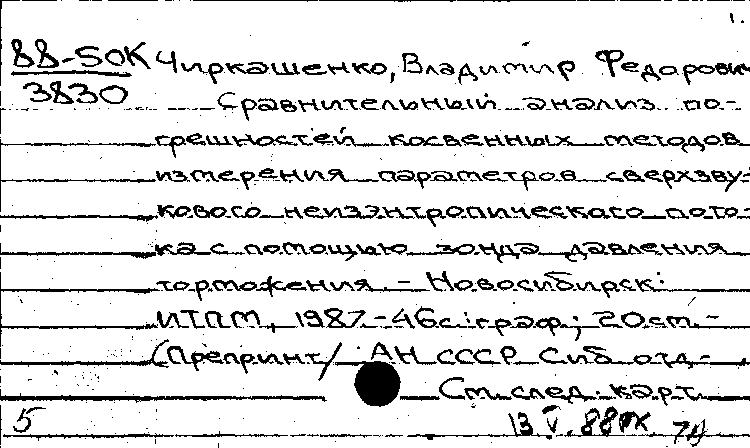 1.
88-50К Чиркашенко, Владимир Федорович
3830
Сравнительный анализ по-
грешностей косвенных методов
измерения параметров сверхзву-
кового неизэнтропического пото-
ка с помощью зонда давления
торможения. - Новосибирск:
ИТПМ, 1987. - 46с.: граф.; 20см. -
(Препринт / АН СССР Сиб отд-
См. след. карт.
5
13.V.88